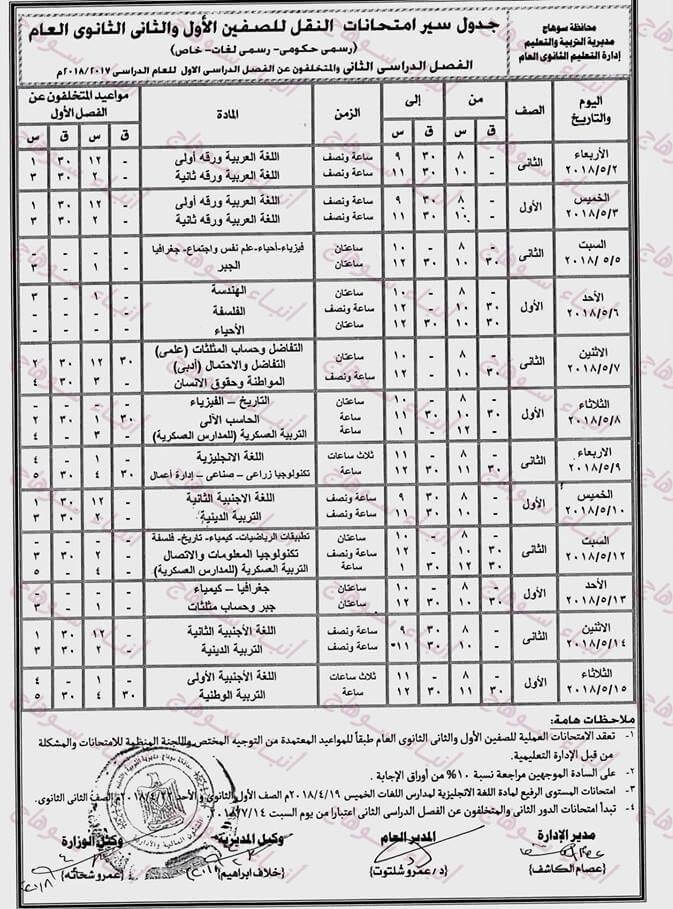 محافظة سوهاج
مديرية التربية والتعليم
إدارة التعليم الثانوى العام
جدول سير امتحانات النقل للصفين الأول والثانى الثانوى العام
(رسمى حكومى- رسمى لغات- خاص)
الفصل الدراسى الثانى والمتخلفون عن الفصل الدراسى الاول للعام الدراسى ٢٠١٨/٢٠١٧م
اليوم والتاريخ الصف من إلى الزمن المادة مواعيد المتخلفون عن الفصل الأول
ق س ق س ق س ق س
الأربعاء ٢٠١٨/٥/٢ الثانى
- ٨ ٣٠ ٩ ساعة ونصف اللغة العربية ورقه أولى - ١٢ ٣٠ ١
- ١٠ ٣٠ ١١ ساعة ونصف اللغة العربية ورقة ثانية - ٢ ٣٠ ٣
الخميس ٢٠١٨/٥/٣ الأول
- ٨ ٣٠ ٩ ساعة ونصف اللغة العربية ورقه أولى - ١٢ ٣٠ ١
- ١٠ ٣٠ ١١ ساعة ونصف اللغة العربية ورقة ثانية - ٢ ٣٠ ٣
السبت ٢٠١٨/٥/٥ الثانى
- ٨ - ١٠ ساعتان فيزياء-أحياء-علم نفس واجتماع-جغرافيا - - - -
٣٠ ١٠ ٣٠ ١٢ ساعتان الجبر - ١ - ٣
الأحد ٢٠١٨/٥/٦ الأول
- ٨ - ١٠ ساعتان الهندسة - ١ - ٣
٣٠ ١٠ - ١٢ ساعة ونصف الفلسفة - - - -
٣٠ ١٠ ٣٠ ١٢ ساعتان الأحياء - - - -
الاثنين ٢٠١٨/٥/٧ الثانى
- ٨ - ١٠ ساعتان التفاضل وحساب المثلثات (علمى) ٣٠ ١٢ ٣٠ ٢
التفاضل والاحتمال (أدبى)
٣٠ ١٠ - ١٢ ساعة ونصف المواطنة وحقوق الانسان - ٣ ٣٠ ٤
الثلاثاء ٢٠١٨/٥/٨ الأول
- ٨ - ١٠ ساعتان التاريخ - الفيزياء - - - -
٣٠ ١٠ ٣٠ ١١ ساعة الحاسب الآلى ٣٠ ١ ٣٠ ٢
- ١٢ - ١ ساعة التربية العسكرية (للمدارس العسكرية) - ٣ - ٤
الاربعاء ٢٠١٨/٥/٩ الثانى
- ٨ - ١١ ثلاث ساعات اللغة الانجليزية - ١ - ٤
٣٠ ١١ ٣٠ ١٢ ساعة تكنولوجيا زراعى - صناعى - إدارة أعمال ٣٠ ٤ ٣٠ ٥
الخميس ٢٠١٨/٥/١٠ الأول
- ٨ ٣٠ ٩ ساعة ونصف اللغة الاجنبية الثانية - ١٢ ٣٠ ١
- ١٠ ٣٠ ١١ ساعة ونصف التربية الدينية - ٢ ٣٠ ٣
السبت ٢٠١٨/٥/١٢ الثانى
- ٨ - ١٠ ساعتان تطبيقات الرياضيات- كيمياء- تاريخ- فلسفة - - - -
٣٠ ١٠ - ١٢ ساعة ونصف تكنولوجيا المعلومات والاتصال - ٢ ٣٠ ٣
٣٠ ١٢ ٣٠ ١ ساعة التربية العسكرية (للمدارس العسكرية) - ٤ - ٥
الأحد ٢٠١٨/٥/١٣ الأول
- ٨ - ١٠ ساعتان جغرافيا - كيمياء - - - -
٣٠ ١٠ ٣٠ ١٢ ساعتان جبر وحساب مثلثات - ١ - ٣
الاثنين ٢٠١٨/٥/١٤ الثانى
- ٨ ٣٠ ٩ ساعة ونصف اللغة الأجنبية الثانية - ١٢ ٣٠ ١
- ١٠ ٣٠ ١١ ساعة ونصف التربية الدينية - ٢ ٣٠ ٣
الثلاثاء ٢٠١٨/٥/١٥ الأول
- ٨ - ١١ ثلاث ساعات اللغة الأجنبية الأولى - ١ - ٤
٣٠ ١١ ٣٠ ١٢ ساعة التربية الوطنية ٣٠ ٤ ٣٠ ٥
ملاحظات هامة:
١- تعقد الامتحانات العملية للصفين الأول والثانى الثانوى العام طبقاً للمواعيد المعتمدة من التوجيه المختص واللجنة المنظمة للامتحانات والمشكلة
من قبل الإدارة التعليمية.
٢- على السادة الموجهين مراجعة نسبة ١٠% من أوراق الإجابة.
٣- امتحانات المستوى الرفيع لمادة اللغة الانجليزية لمدارس اللغات الخميس ٢٠١٨/٤/١٩م الصف الأول الثانوى والأحد ٢٠١٨/٤/٢٢م الصف الثانى الثانوى.
٤- تبدأ امتحانات الدور الثانى والمتخلفون عن الفصل الدراسى الثانى اعتبارا من يوم السبت ٢٠١٨/٧/١٤م
مدير الإدارة
(عصام الكاشف)
المدير العام
(د/عمرو شلتوت)
وكيل المديرية
(خلاف ابراهيم)
وكيل الوزارة
(عمرو شحاته)
انباء سوهاج